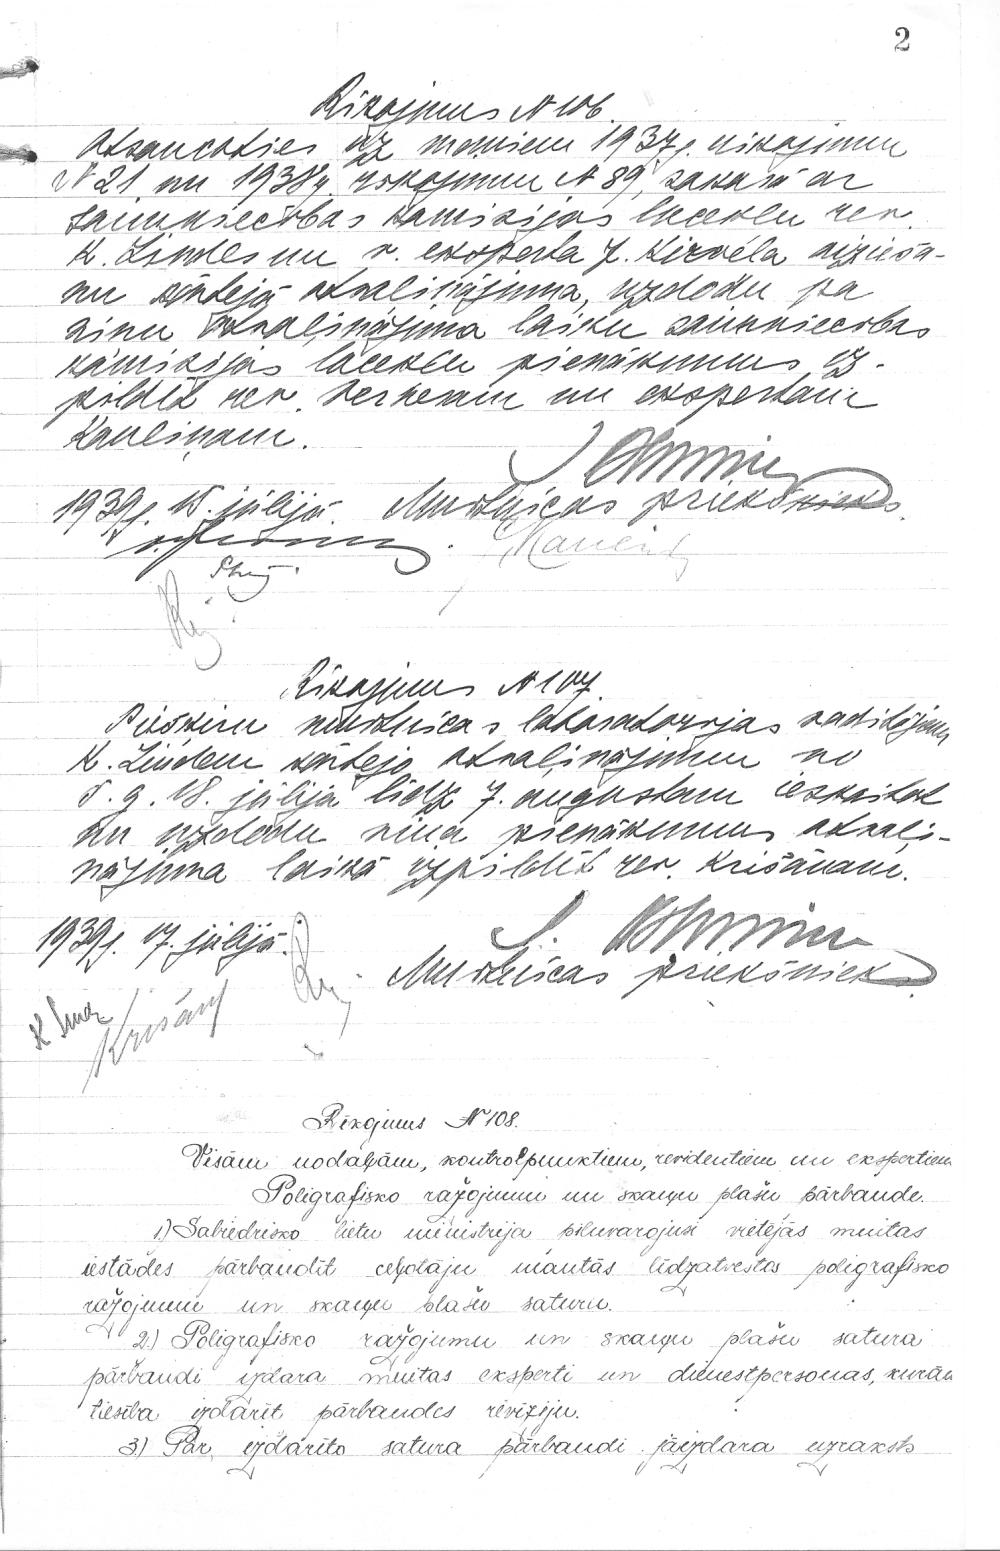 2
Rīkojums N 106.
Atsaucoties uz maniem 1937g. rīkojumu
N 21 un 1938g. rīkojumu N 89, sakarā ar
saimniecības komisijas locekļu rev.
K. Lindes un v. eksperta J. Ķirvēla aizieša-
nu kārtējā atvaļinājumā, uzdodu pa
viņu atvaļinājuma laiku saimniecības
komisijas locekļu pienākumus iz-
pildīt rev. un ekspertam
Kauliņam.
1939g. 15. jūlijā. Muitnīcas priekšnieks.
Rīkojums N 107.
Piešķiru muitnīcas laboratorijas vadītājam
K. Lindem kārtējo atvaļinājumu no
š. g. 18. jūlija līdz 7. augustam ieskaitot
un uzdodu viņa pienākumus atvaļi-
nājuma laikā izpildīt rev. Krišānam.
1939g. 17. jūlijā.
Muitnīcas priekšnieks
Krišān
Rīkojums N 108.
Visām nodaļām, kontrolpunktiem, revidentiem un ekspertiem
Poligrafisko ražojumu un skaņu plašu pārbaude.
1) Sabiedrisko lietu ministrija pilnvarojusi vietējās muitas
iestādes pārbaudīt ceļotāju mantās līdzatvestos poligrafisko
ražojumu un skaņu plašu saturu.
2.) Poligrafisko ražojumu un skaņu plašu satura
pārbaudi izdara muitas eksperti un dienestpersonas, kurām
tiesība izdarīt pārbaudes revīziju.
3) Par izdarīto satura pārbaudi jāizdara uzraksts